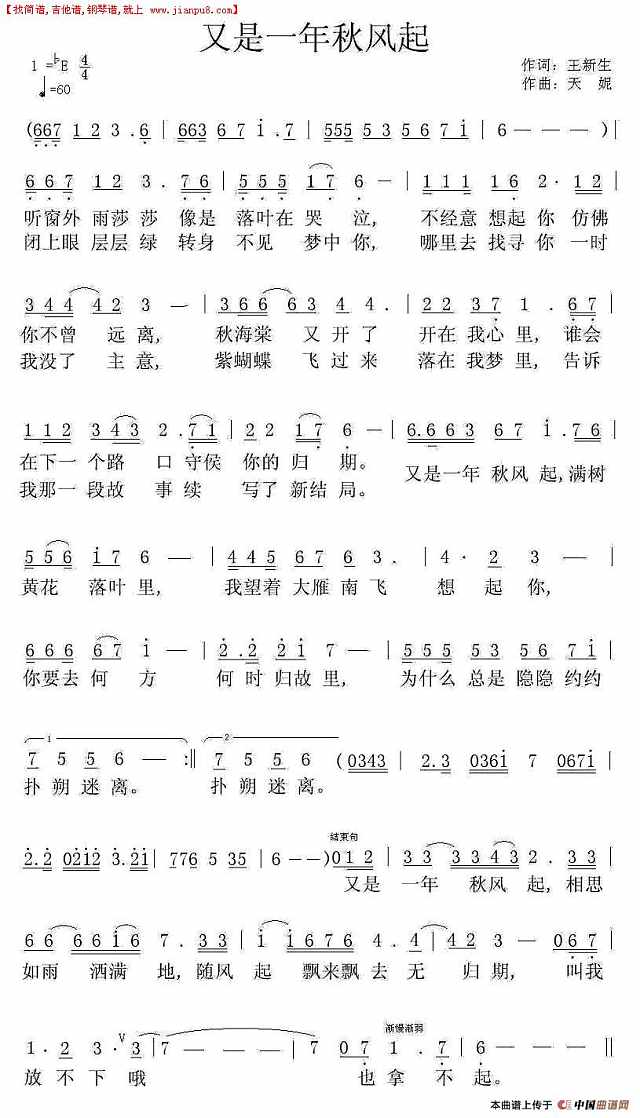 【找简谱,吉他谱,钢琴谱,就上 www.jianpu8.com】
又是一年秋风起
1=♭E 4/4
♩=60
作词：王新生
作曲：天 妮
(667 1 2 3.6 | 663 6 7 i.7 | 555 5 3 5 6 7 i | 6 — — —)|
6 6 7 1 2 3 . 7 6 | 5 5 5 1 7 6 — | 1 1 1 1 6 2 · 1 2 |
听窗外 雨莎 莎 像是 落叶在 哭 泣, 不经意 想起 你 仿佛
闭上眼 层层 绿 转身 不见 梦中 你, 哪里去 找寻 你 一时
3 4 4 4 2 3 — | 3 6 6 6 3 4 3 . | 2 2 2 3 7 1 . 6 7 |
你不曾 远 离, 秋海棠 又 开了 开在 我心 里, 谁会
我没了 主 意, 紫蝴蝶 飞 过来 落在 我梦 里, 告诉
1 1 2 3 4 3 2 . 7 1 | 2 2 1 7 6 — | 6.6 6 3 6 7 i . 7 6 |
在下一 个路 口 守侯 你的 归 期。 又是一年 秋风 起,满树
我那一 段故 事 续 写了 新结 局。
5 5 6 i 7 6 — | 4 4 5 6 7 6 3 . | 6 · 2 3 — |
黄花 落叶 里, 我望着 大雁 南飞 想 起 你,
6 6 6 6 7 i — | 2 . 2 2 i 7 6 | 5 5 5 5 3 5 6 7 i |
你要去 何 方 何 时归故 里, 为什么 总是 隐隐 约约
1 2
7 5 5 6 — :‖ 7 5 5 6 — (0343 | 2.3 036i 7 067i |
扑 朔 迷 离。 扑 朔 迷 离。
2.2 0212 3.2i | 776 5 35 | 6 — —) 0 1 2 | 3 3 3 3 4 3 2 3 |
结束句
又是 一年 秋风 起,相思
6 6 6 6 i 6 7 . 3 3 | i . i i i 2 4 | 4 2 4 2 3 . 0 6 7 |
如雨 洒满 地,随风 起 飘来飘 去 无 归 期, 叫我
1 · 2 3 · 3 V | 7 — — 7 0 7 1 . 7 | 6 — — — ‖
渐慢渐弱
放 不 下 哦 也 拿 不 起。
本曲谱上传于 中国曲谱网